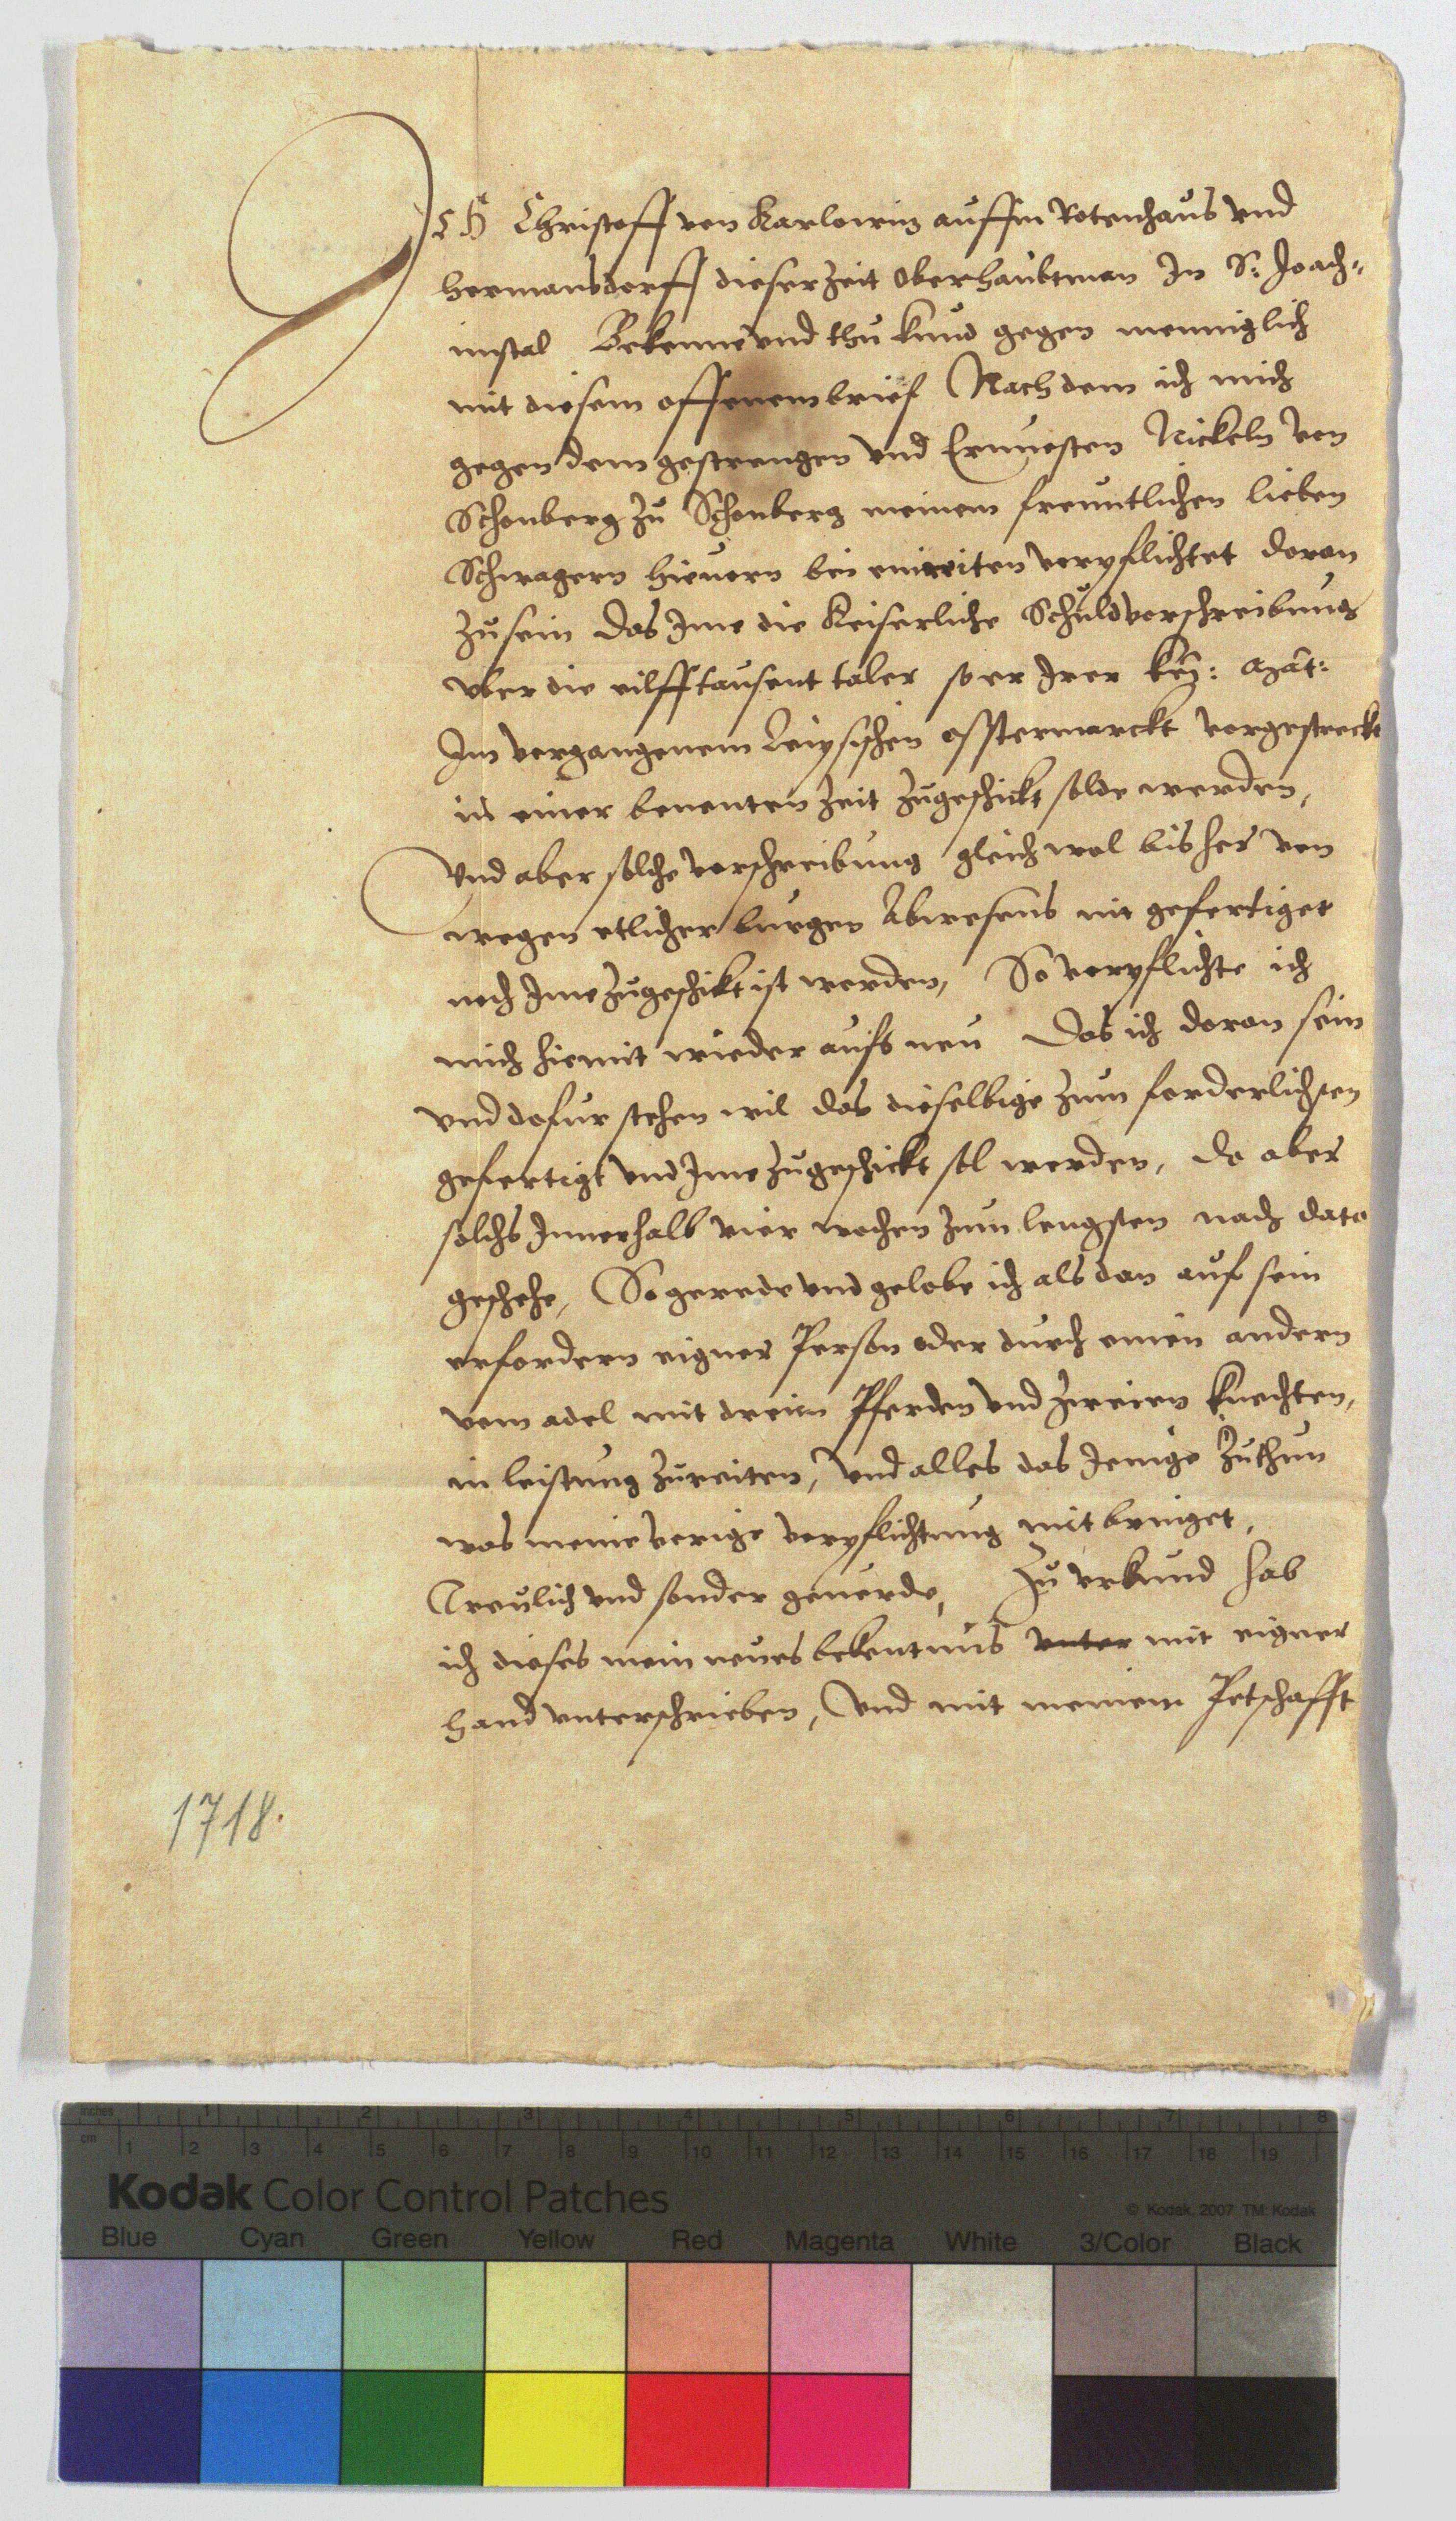 ICH Christoff von Karlowitz auffm Rotenhaus vnd
hermansdorff dieser Zeit Oberhaubtman In S: Joach-
imstal Bekenne vnd thu kund gegen menniglich
mit diesem offenem brief Nach dem ich mich
gegen dem gestrengen vnd Ernuesten Nickeln von
Schonberg zu Schonberg meinem freuntlichen lieben
Schwagern hieuorn bei einreiten verpflichtet doran
zu sein das Ime die Keiserliche Schuldvorschreibung
vber die eilfftausent taler so er Irer key: Mat:
Im vergangenem Leipsischen Ostermarckt vorgestreckt
in einer benenten Zeit zugeschickt solde werden,
Vnd aber solche vorschreibung gleichwol bisher von
wegen etlicher burgen Abwesens nit gefertiget
noch Ime zugeschikt ist worden, So verpflichte ich
mich hiemit wieder aufs neu Das ich doran sein
vnd dofur stehen wil das dieselbige zum forderlichsten
gefertigt vnd Ime zugeschickt sol werden, Do aber
solchs Innerhalb vier wochen zum lengsten nach dato
geschehe, So gerede vnd gelobe ich als dan auf sein
erfordern eigner Person oder durch einen andern
vom adel mit dreien Pferden vnd zweien knechten,
in leistung zureiten, Vnd alles das Jenige zuthun
was meine vorige vorpflichtung mit bringet,
Treulich vnd sonder geuerde, Zu vrkund hab
ich dieses mein neues bekentnus vnter mit eigner
hand vnterschrieben, Vnd mit meinem Petschafft
1718.
inches 1 2 3 4 5 6 7 8
cm 1 2 3 4 5 6 7 8 9 10 11 12 13 14 15 16 17 18 19
Kodak Color Control Patches
© Kodak, 2007 TM: Kodak
Blue Cyan Green Yellow Red Magenta White 3/Color Black